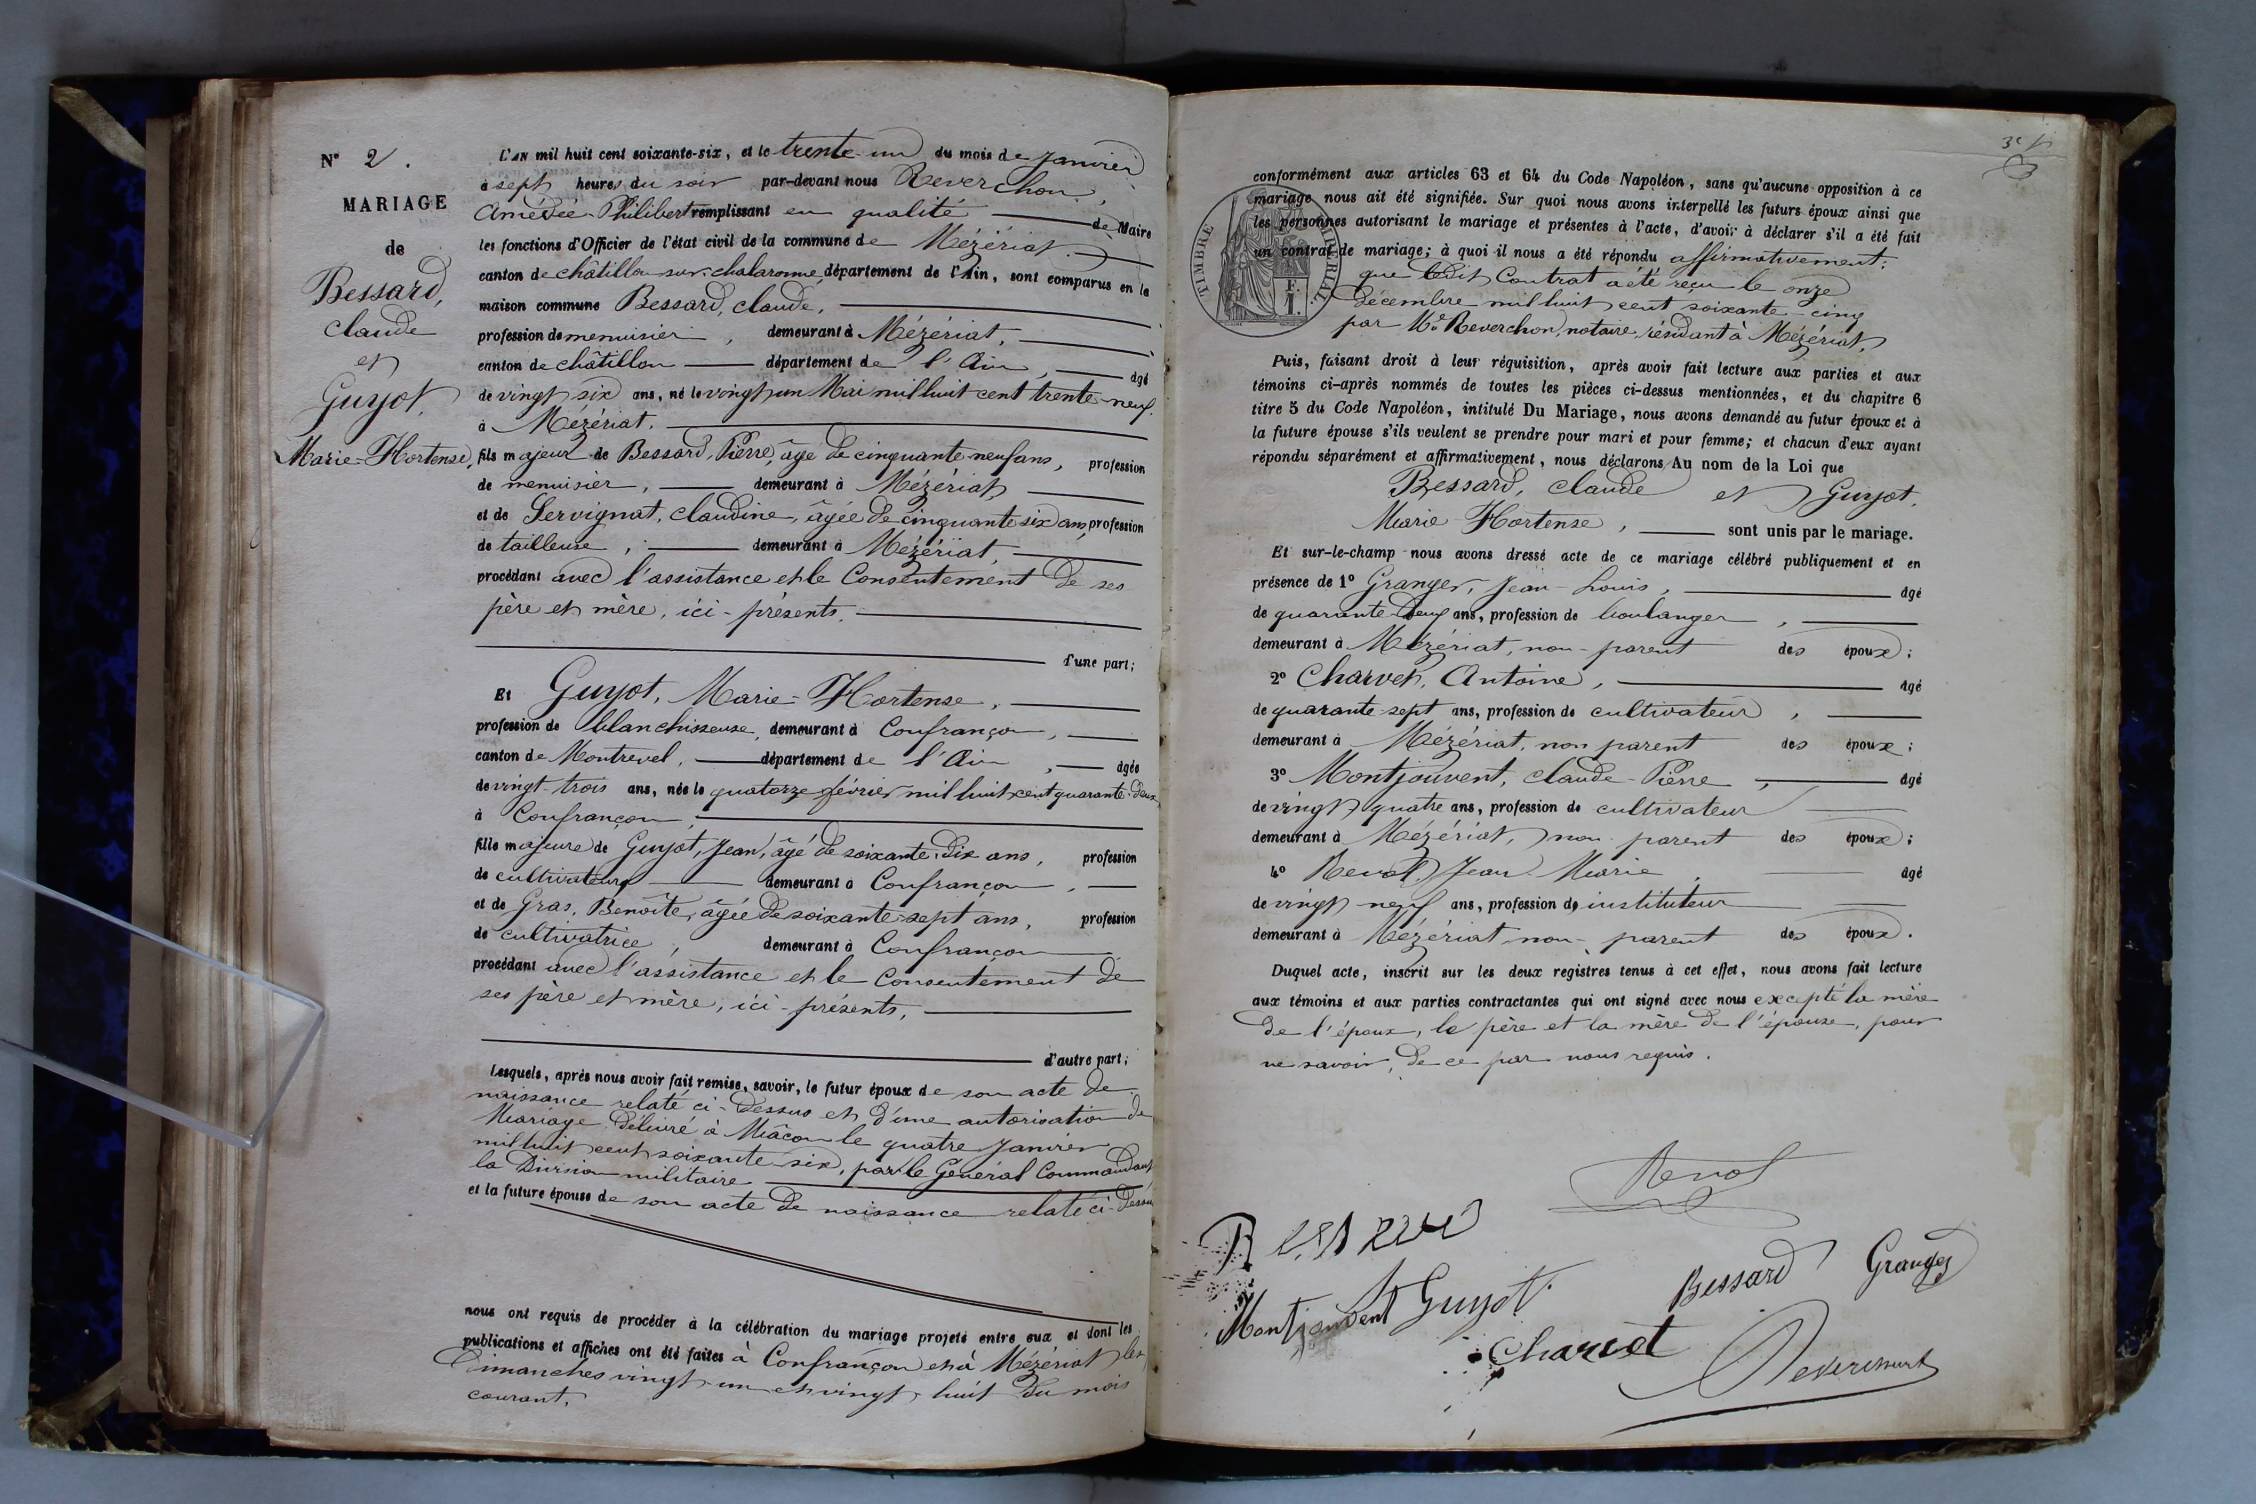 N° 2.
MARIAGE
de
Bessard,
claude
et
Guyot,
Marie-Hortense,
L'AN mil huit cent soixante-six, et le trente-un du mois de Janvier
à sept heures du soir par-devant nous Reverchon,
Amédée Philibert remplissant en qualité de Maire
les fonctions d'Officier de l'état civil de la commune de Mézériat,
canton de châtillon-sur-chalaronne, département de l'Ain, sont comparus en la
maison commune Bessard, claude,
profession de menuisier, demeurant à Mézériat,
canton de châtillon département de l'Ain, âgé
de vingt six ans, né le vingt un Mai mil huit cent trente-neuf
à Mézériat.
fils majeur de Bessard, Pierre, âgé de cinquante-neuf ans, profession
de menuisier, demeurant à Mézériat,
et de Servignat, claudine, âgée de cinquante six ans, profession
de tailleuse, demeurant à Mézériat,
procédant avec l'assistance et le Consentement de ses
père et mère, ici-présents.
d'une part;
Et Guyot, Marie-Hortense,
profession de blanchisseuse, demeurant à Confrançon,
canton de Montrevel, département de l'Ain, âgée
de vingt-trois ans, née le quatorze février mil huit cent quarante-deux
à Confrançon,
fille majeure de Guyot, Jean, âgé de soixante-dix ans, profession
de cultivateur demeurant à Confrançon,
et de Gras, Benoîte, âgée de soixante-sept ans, profession
de cultivatrice, demeurant à Confrançon
procédant avec l'assistance et le Consentement de
ses père et mère, ici-présents,
d'autre part;
Lesquels, après nous avoir fait remise, savoir, le futur époux de son acte de
naissance relaté ci-dessus et d'une autorisation de
Mariage délivré à Mâcon le quatre Janvier
mil huit cent soixante-six, par le Général Commandant
la Division militaire
et la future épouse de son acte de naissance relaté ci-dessus
nous ont requis de procéder à la célébration du mariage projeté entre eux et dont les
publications et affiches ont été faites à Confrançon et à Mézériat les
Dimanches vingt-un et vingt-huit du mois
courant.
conformément aux articles 63 et 64 du Code Napoléon, sans qu'aucune opposition à ce
mariage nous ait été signifiée. Sur quoi nous avons interpellé les futurs époux ainsi que
les personnes autorisant le mariage et présentes à l'acte, d'avoir à déclarer s'il a été fait
un contrat de mariage; à quoi il nous a été répondu affirmativement:
que ledit Contrat a été reçu le onze
Décembre mil huit cent soixante-cinq
par Me Reverchon, notaire résidant à Mézériat,
TIMBRE IMPÉRIAL
Puis, faisant droit à leur réquisition, après avoir fait lecture aux parties et aux
témoins ci-après nommés de toutes les pièces ci-dessus mentionnées, et du chapitre 6
titre 5 du Code Napoléon, intitulé Du Mariage, nous avons demandé au futur époux et à
la future épouse s'ils veulent se prendre pour mari et pour femme; et chacun d'eux ayant
répondu séparément et affirmativement, nous déclarons Au nom de la Loi que
Bessard, claude et Guyot,
Marie Hortense, sont unis par le mariage.
Et sur-le-champ nous avons dressé acte de ce mariage célébré publiquement et en
présence de 1° Granger, Jean-Louis, âgé
de quarante-deux ans, profession de boulanger,
demeurant à Mézériat, non-parent des époux;
2° Charvet, Antoine, âgé
de quarante-sept ans, profession de cultivateur,
demeurant à Mézériat, non parent des époux;
3° Montjouvent, claude-Pierre, âgé
de vingt quatre ans, profession de cultivateur
demeurant à Mézériat, non parent des époux;
4° Revol, Jean Marie, âgé
de vingt neuf ans, profession de instituteur
demeurant à Mézériat non-parent des époux.
Duquel acte, inscrit sur les deux registres tenus à cet effet, nous avons fait lecture
aux témoins et aux parties contractantes qui ont signé avec nous excepté la mère
de l'époux, le père et la mère de l'épouse, pour
ne savoir, de ce par nous requis.
Revol
Montjouvent Guyot
Bessard Granger
Charvet